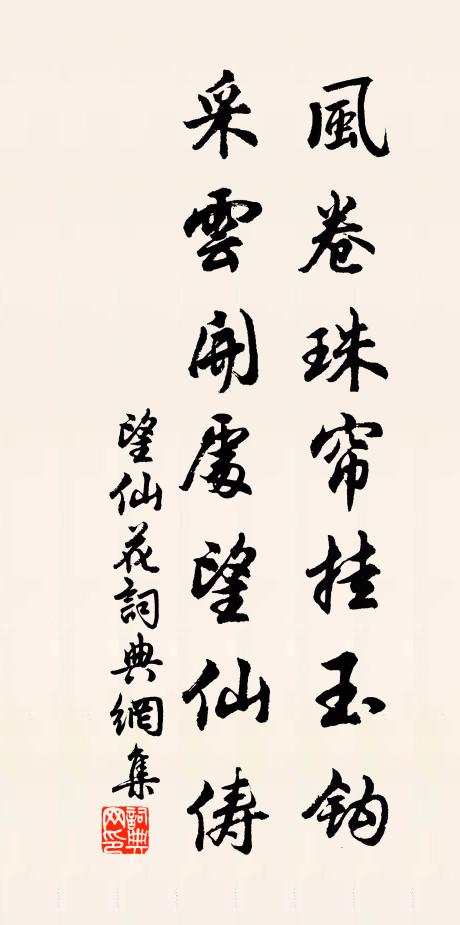 風卷珠帘挂玉鈎
采雲開處望仙俦
望仙花詞典網集
詞典网印